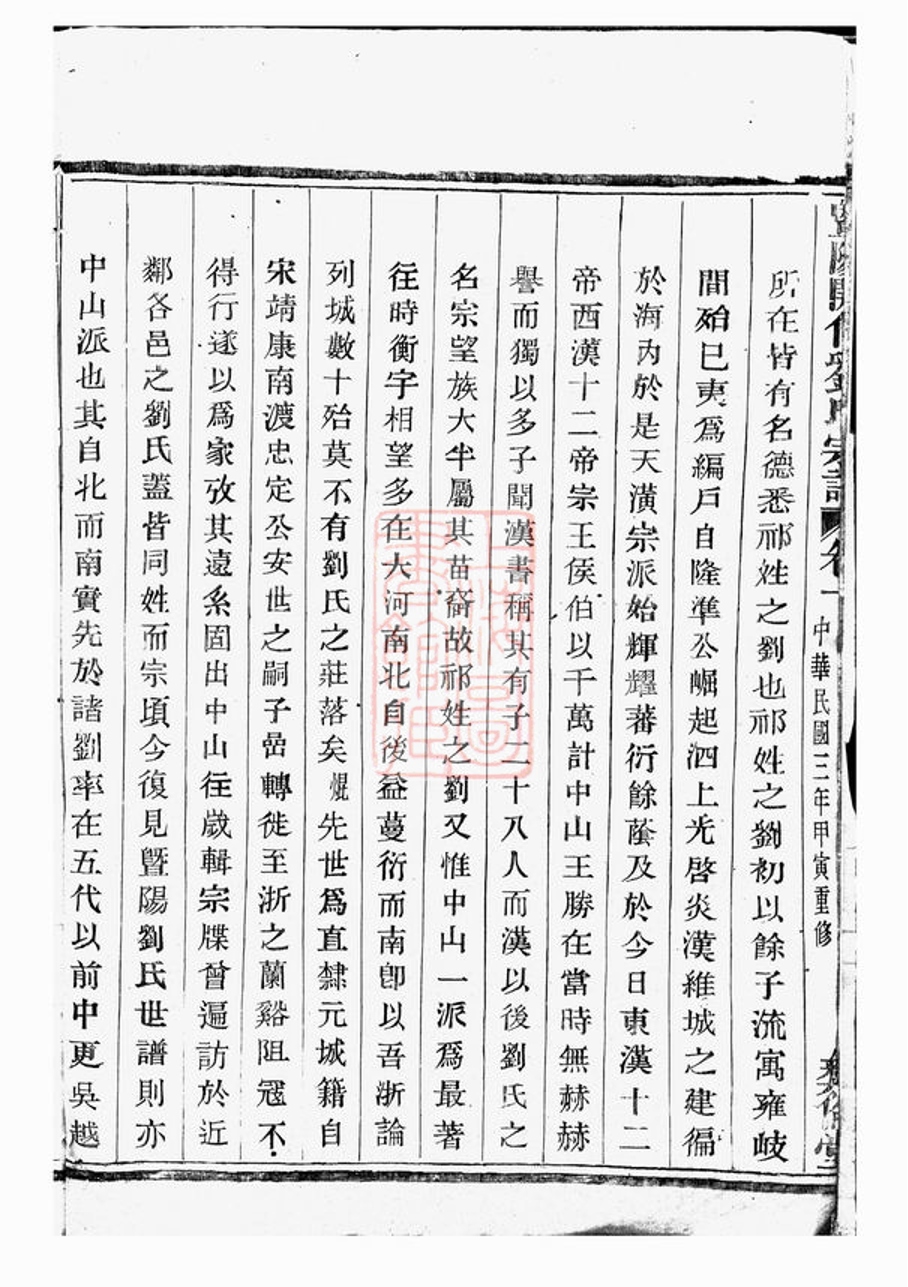 暨陽開化劉氏宗譜 卷一 中華民國三年甲寅重修
所在皆有名德悉祁姓之劉也祁姓之劉初以餘子流寓雍岐
間殆已夷爲編戶自隆準公崛起泗上光啓炎漢維城之建徧
於海內於是天潢宗派始輝耀蕃衍餘蔭及於今日東漢十二
帝西漢十二帝宗王侯伯以千萬計中山王勝在當時無赫赫
譽而獨以多子聞漢書稱其有子二十八人而漢以後劉氏之
名宗望族大半屬其苗裔故祁姓之劉又惟中山一派爲最著
徃時衡字相望多在大河南北自後益蔓衍而南卽以吾浙論
列城數十殆莫不有劉氏之莊落矣焜先世爲直隸元城籍自
宋靖康南渡忠定公安世之嗣子嵒轉徙至浙之蘭谿阻寇不
得行遂以爲家攷其遠系固出中山徃歲輯宗牒曾遍訪於近
鄰各邑之劉氏蓋皆同姓而宗頃今復見曁陽劉氏世譜則亦
中山派也其自北而南實先於諸劉率在五代以前中更吳越